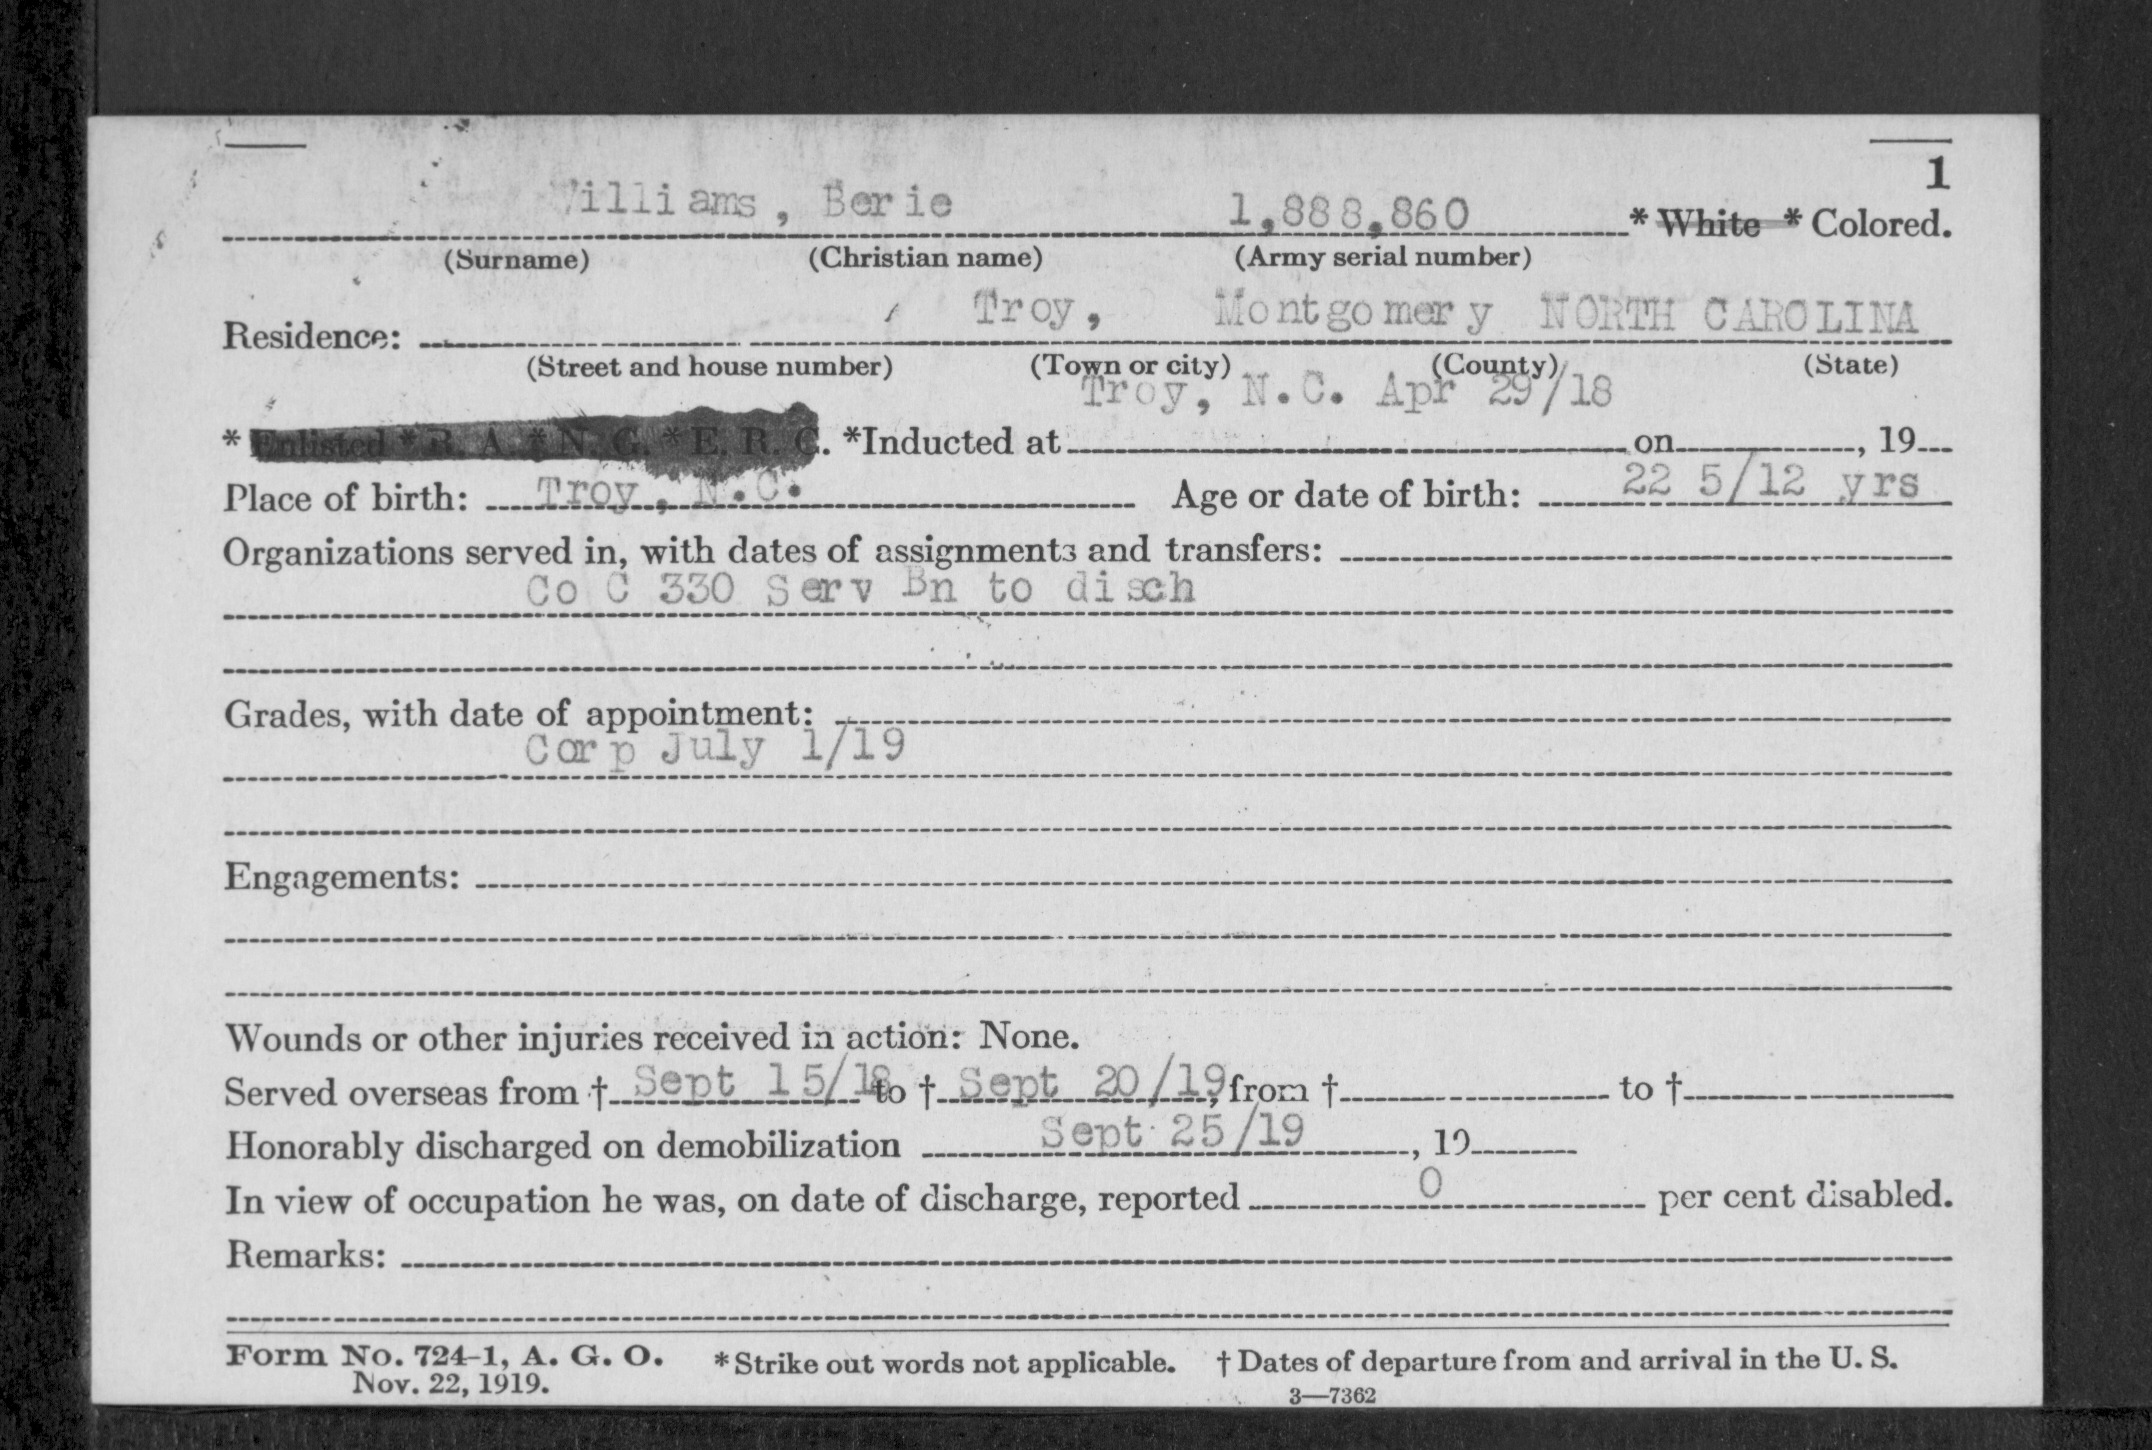 1
Williams, Berie 1,888,860 * White * Colored.
(Surname) (Christian name) (Army serial number)
Residence: Troy, Montgomery NORTH CAROLINA
(Street and house number) (Town or city) (County) (State)
Troy, N.C. Apr 29/18
* Enlisted * R. A. * N. G. * E. R. C. *Inducted at on , 19
Place of birth: Troy, N.C. Age or date of birth: 22 5/12 yrs
Organizations served in, with dates of assignments and transfers:
Co C 330 Serv Bn to disch
Grades, with date of appointment:
Corp July 1/19
Engagements:
Wounds or other injuries received in action: None.
Served overseas from † Sept 15/18 to † Sept 20/19, from † to †
Honorably discharged on demobilization Sept 25/19, 19
In view of occupation he was, on date of discharge, reported 0 per cent disabled.
Remarks:
Form No. 724-1, A. G. O. * Strike out words not applicable. † Dates of departure from and arrival in the U. S.
Nov. 22, 1919. 3—7362